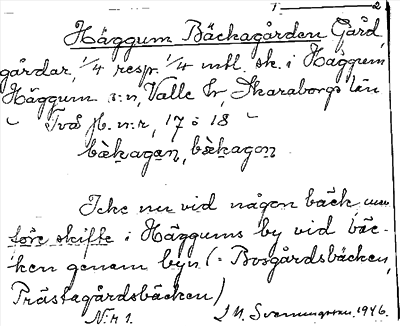 1 2
Häggum Bäckagården Gård,
gårdar, 1/4 resp. 1/4 mtl. sk. i Häggum
Häggum s:n, Valle hr, Skaraborgs län
" Två jb. n:r, 17 o 18 "
bækagen, bækagon
Icke nu vid någon bäck men
före skifte i Häggums by vid bäc-
ken genom byn (= Bosgårdsbäcken,
Prästagårdsbäcken)
N:r 1. J M. Svenningsson. 1946.